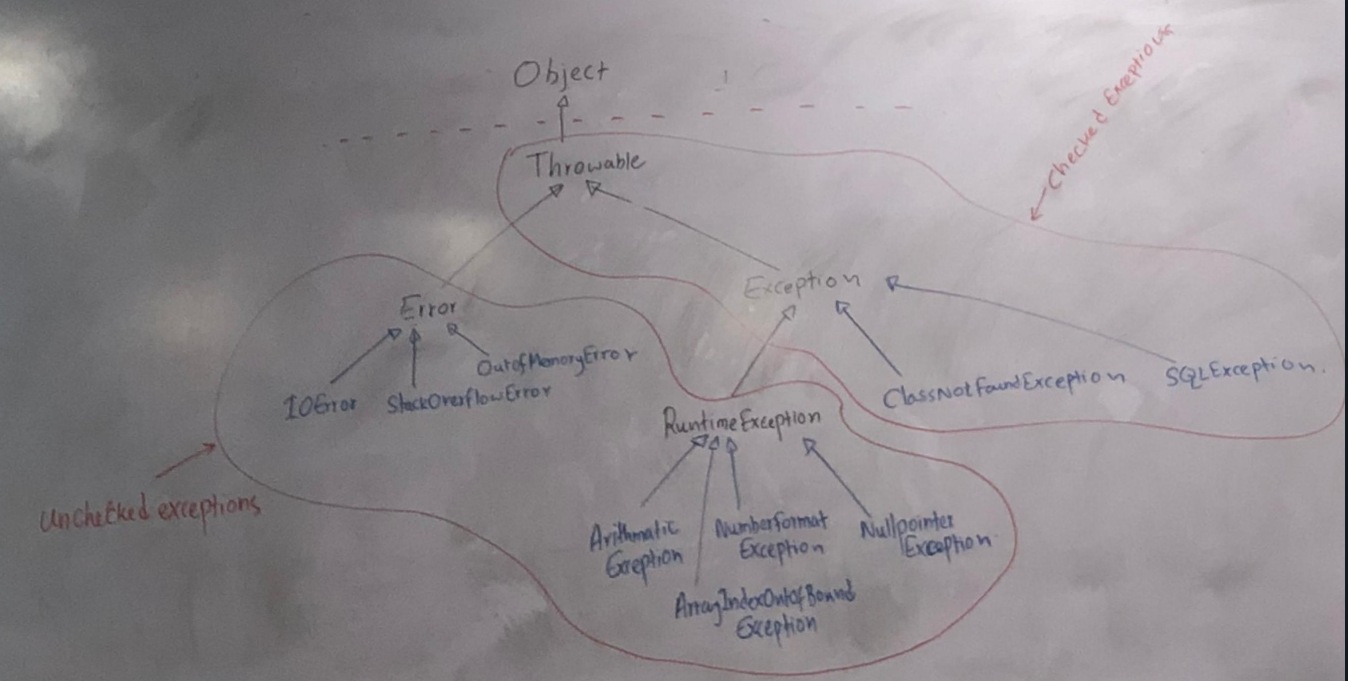 Object
Checked Exceptions
Throwable
Exception
Error
OutofMemoryError
IOError
StackOverflowError
ClassNotFoundException
SQLException.
RuntimeException
Unchecked exceptions
Arithmatic
Exception
Numberformat
Exception
Nullpointer
Exception
ArrayIndexOutofBound
Exception